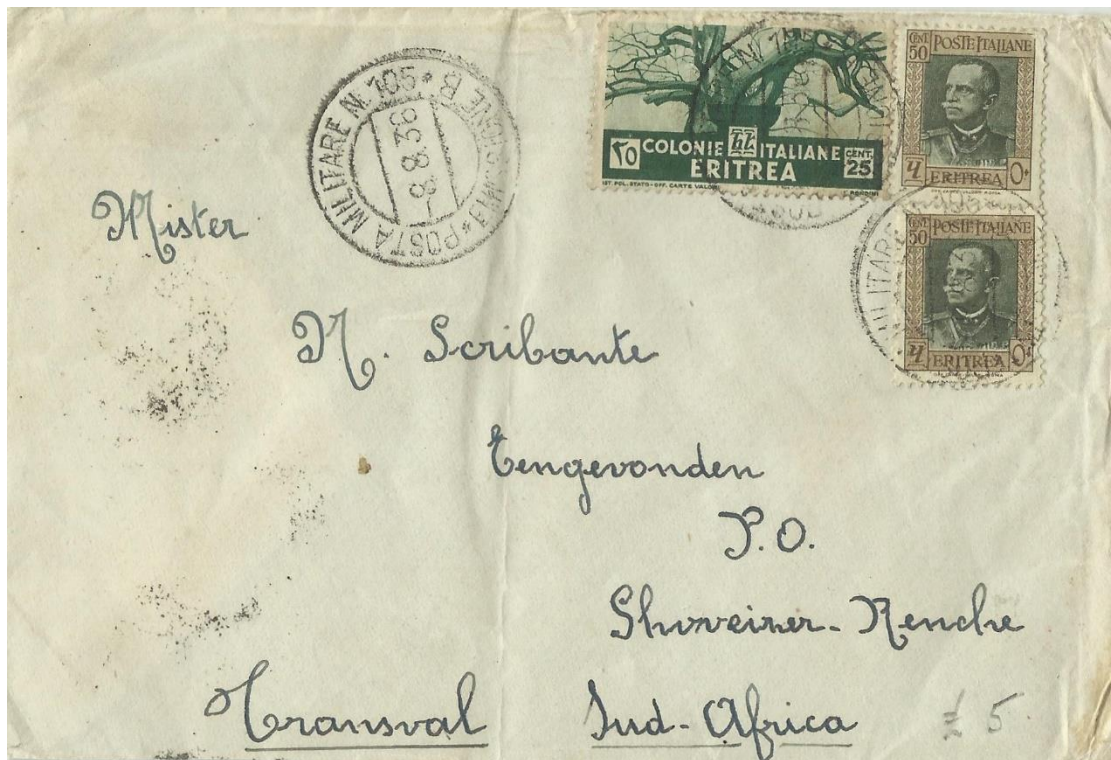 POSTA MILITARE N. 105 * SEZIONE B *
-8.8.36
COLONIE ITALIANE
ERITREA
٢٥
CENT. 25
IST. POL. STATO - OFF. CARTE VALORI
CENT 50 POSTE ITALIANE
ERITREA
CENT 50 POSTE ITALIANE
ERITREA
MILITARE
Mister
N. Scribante
Eengevonden
P.O.
Transval Sud-Africa
£ 5